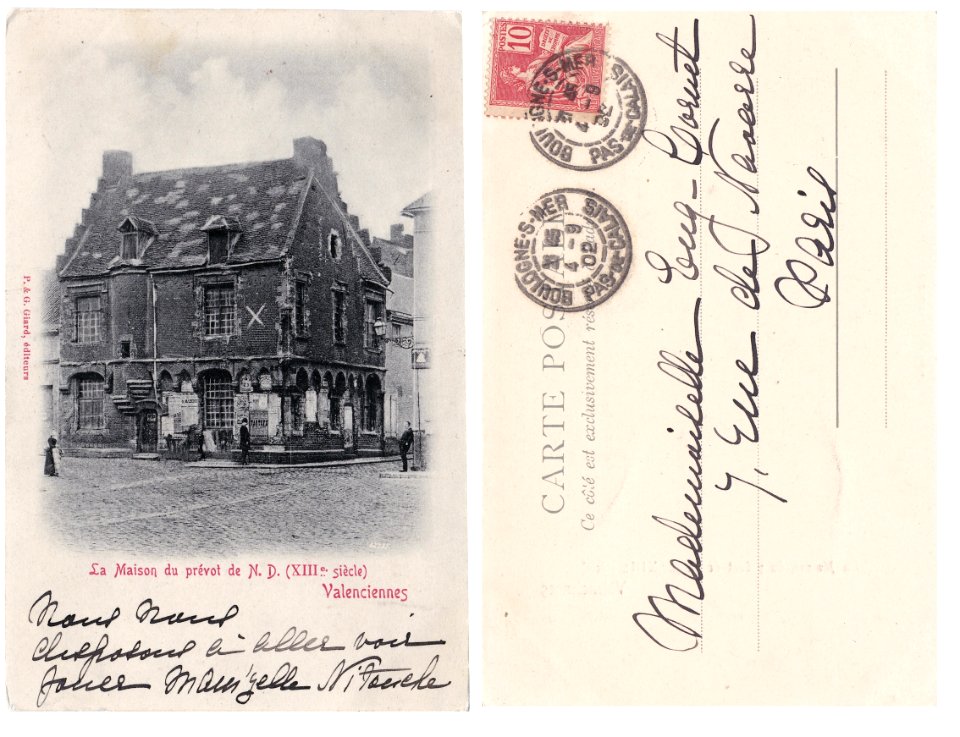 P. & G. Giard, éditeurs
La Maison du prévot de N. D. (XIIIe. siècle)
Valenciennes
Nous Nous
disposons à aller voir
jouer Mam'zelle Nitouche
POSTES
10
BOULOGNE-S-MER
4 -9
02
PAS-DE-CALAIS
BOULOGNE-S-MER
4 -9
02
PAS-DE-CALAIS
CARTE POS
Ce côté est exclusivement rés
Mademoiselle Eug- Cornet
7, Rue de Navarre
Paris